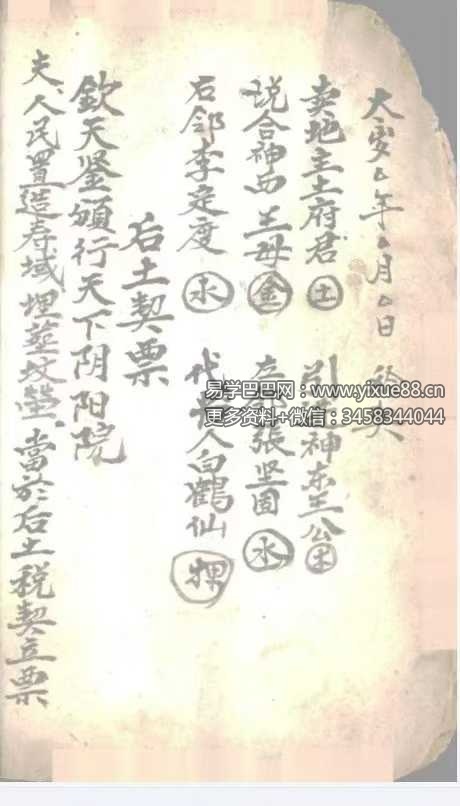 大安乙年乙月乙日
卖地主土府君 土 引进神东王公 木
说合神西王母 金 左邻张坚固 水
右邻李定度 水 代书人白鹤仙
后土契票
欽天鉴頒行天下阴阳院
夫人民置造寿域埋葬坟塋当於后土税契立票
易学巴巴网:www.yixue88.cn
更多资料+微信:3458344044